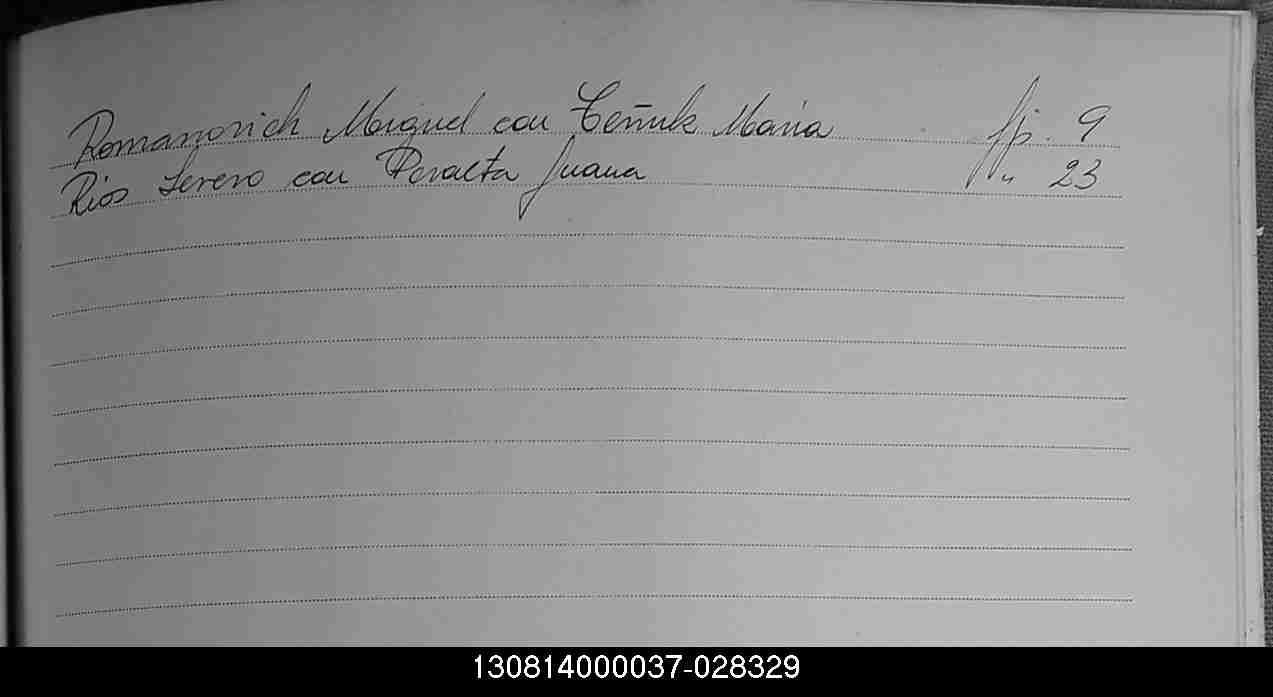 Romanovich Miguel con Ceñuk Maria fjs. 9
Rios Severo con Peralta Juana " 23
130814000037-028329